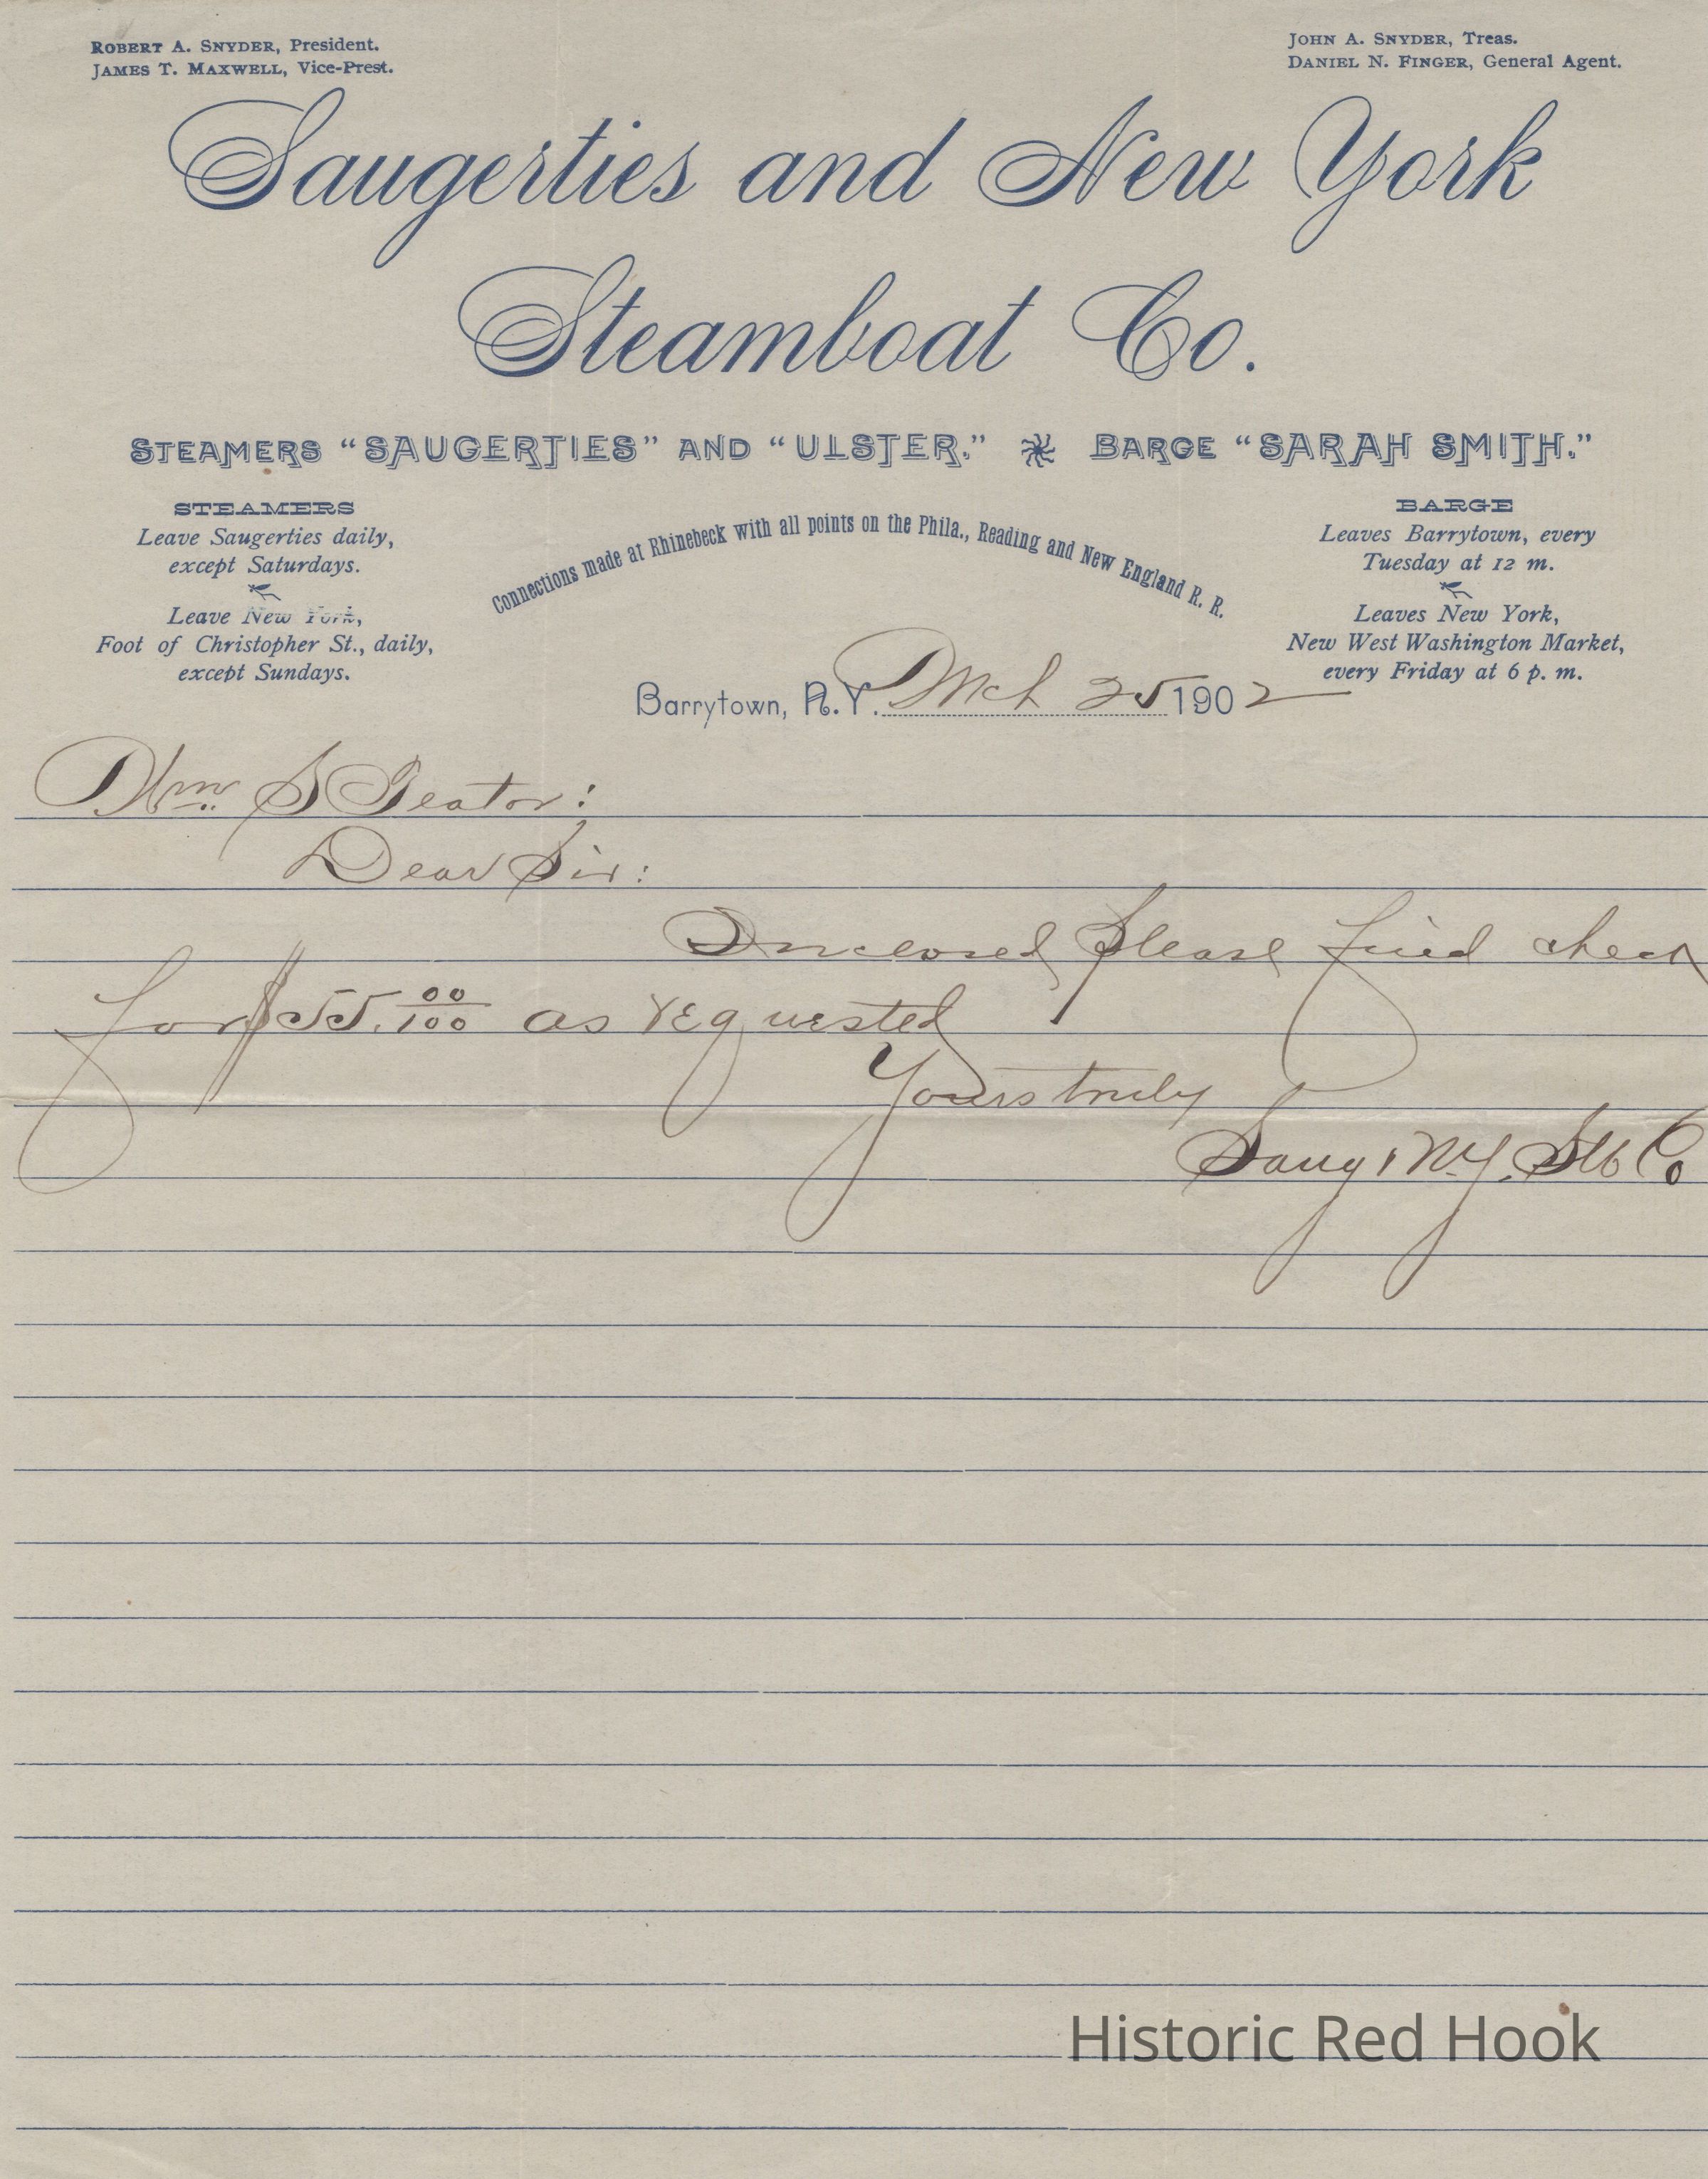 ROBERT A. SNYDER, President.
JAMES T. MAXWELL, Vice-Prest.
JOHN A. SNYDER, Treas.
DANIEL N. FINGER, General Agent.
Saugerties and New York
Steamboat Co.
STEAMERS “SAUGERTIES” AND “ULSTER.” BARGE “SARAH SMITH.”
STEAMERS
Leave Saugerties daily,
except Saturdays.
Leave New York,
Foot of Christopher St., daily,
except Sundays.
Connections made at Rhinebeck with all points on the Phila., Reading and New England R. R.
BARGE
Leaves Barrytown, every
Tuesday at 12 m.
Leaves New York,
New West Washington Market,
every Friday at 6 p. m.
Barrytown, N.Y. Mch 25 1902
Wm S Teator:
Dear Sir:
Inclosed please find check
for $55.00/100 as requested
Yours truly
Saug & N.Y. SB Co
Historic Red Hook